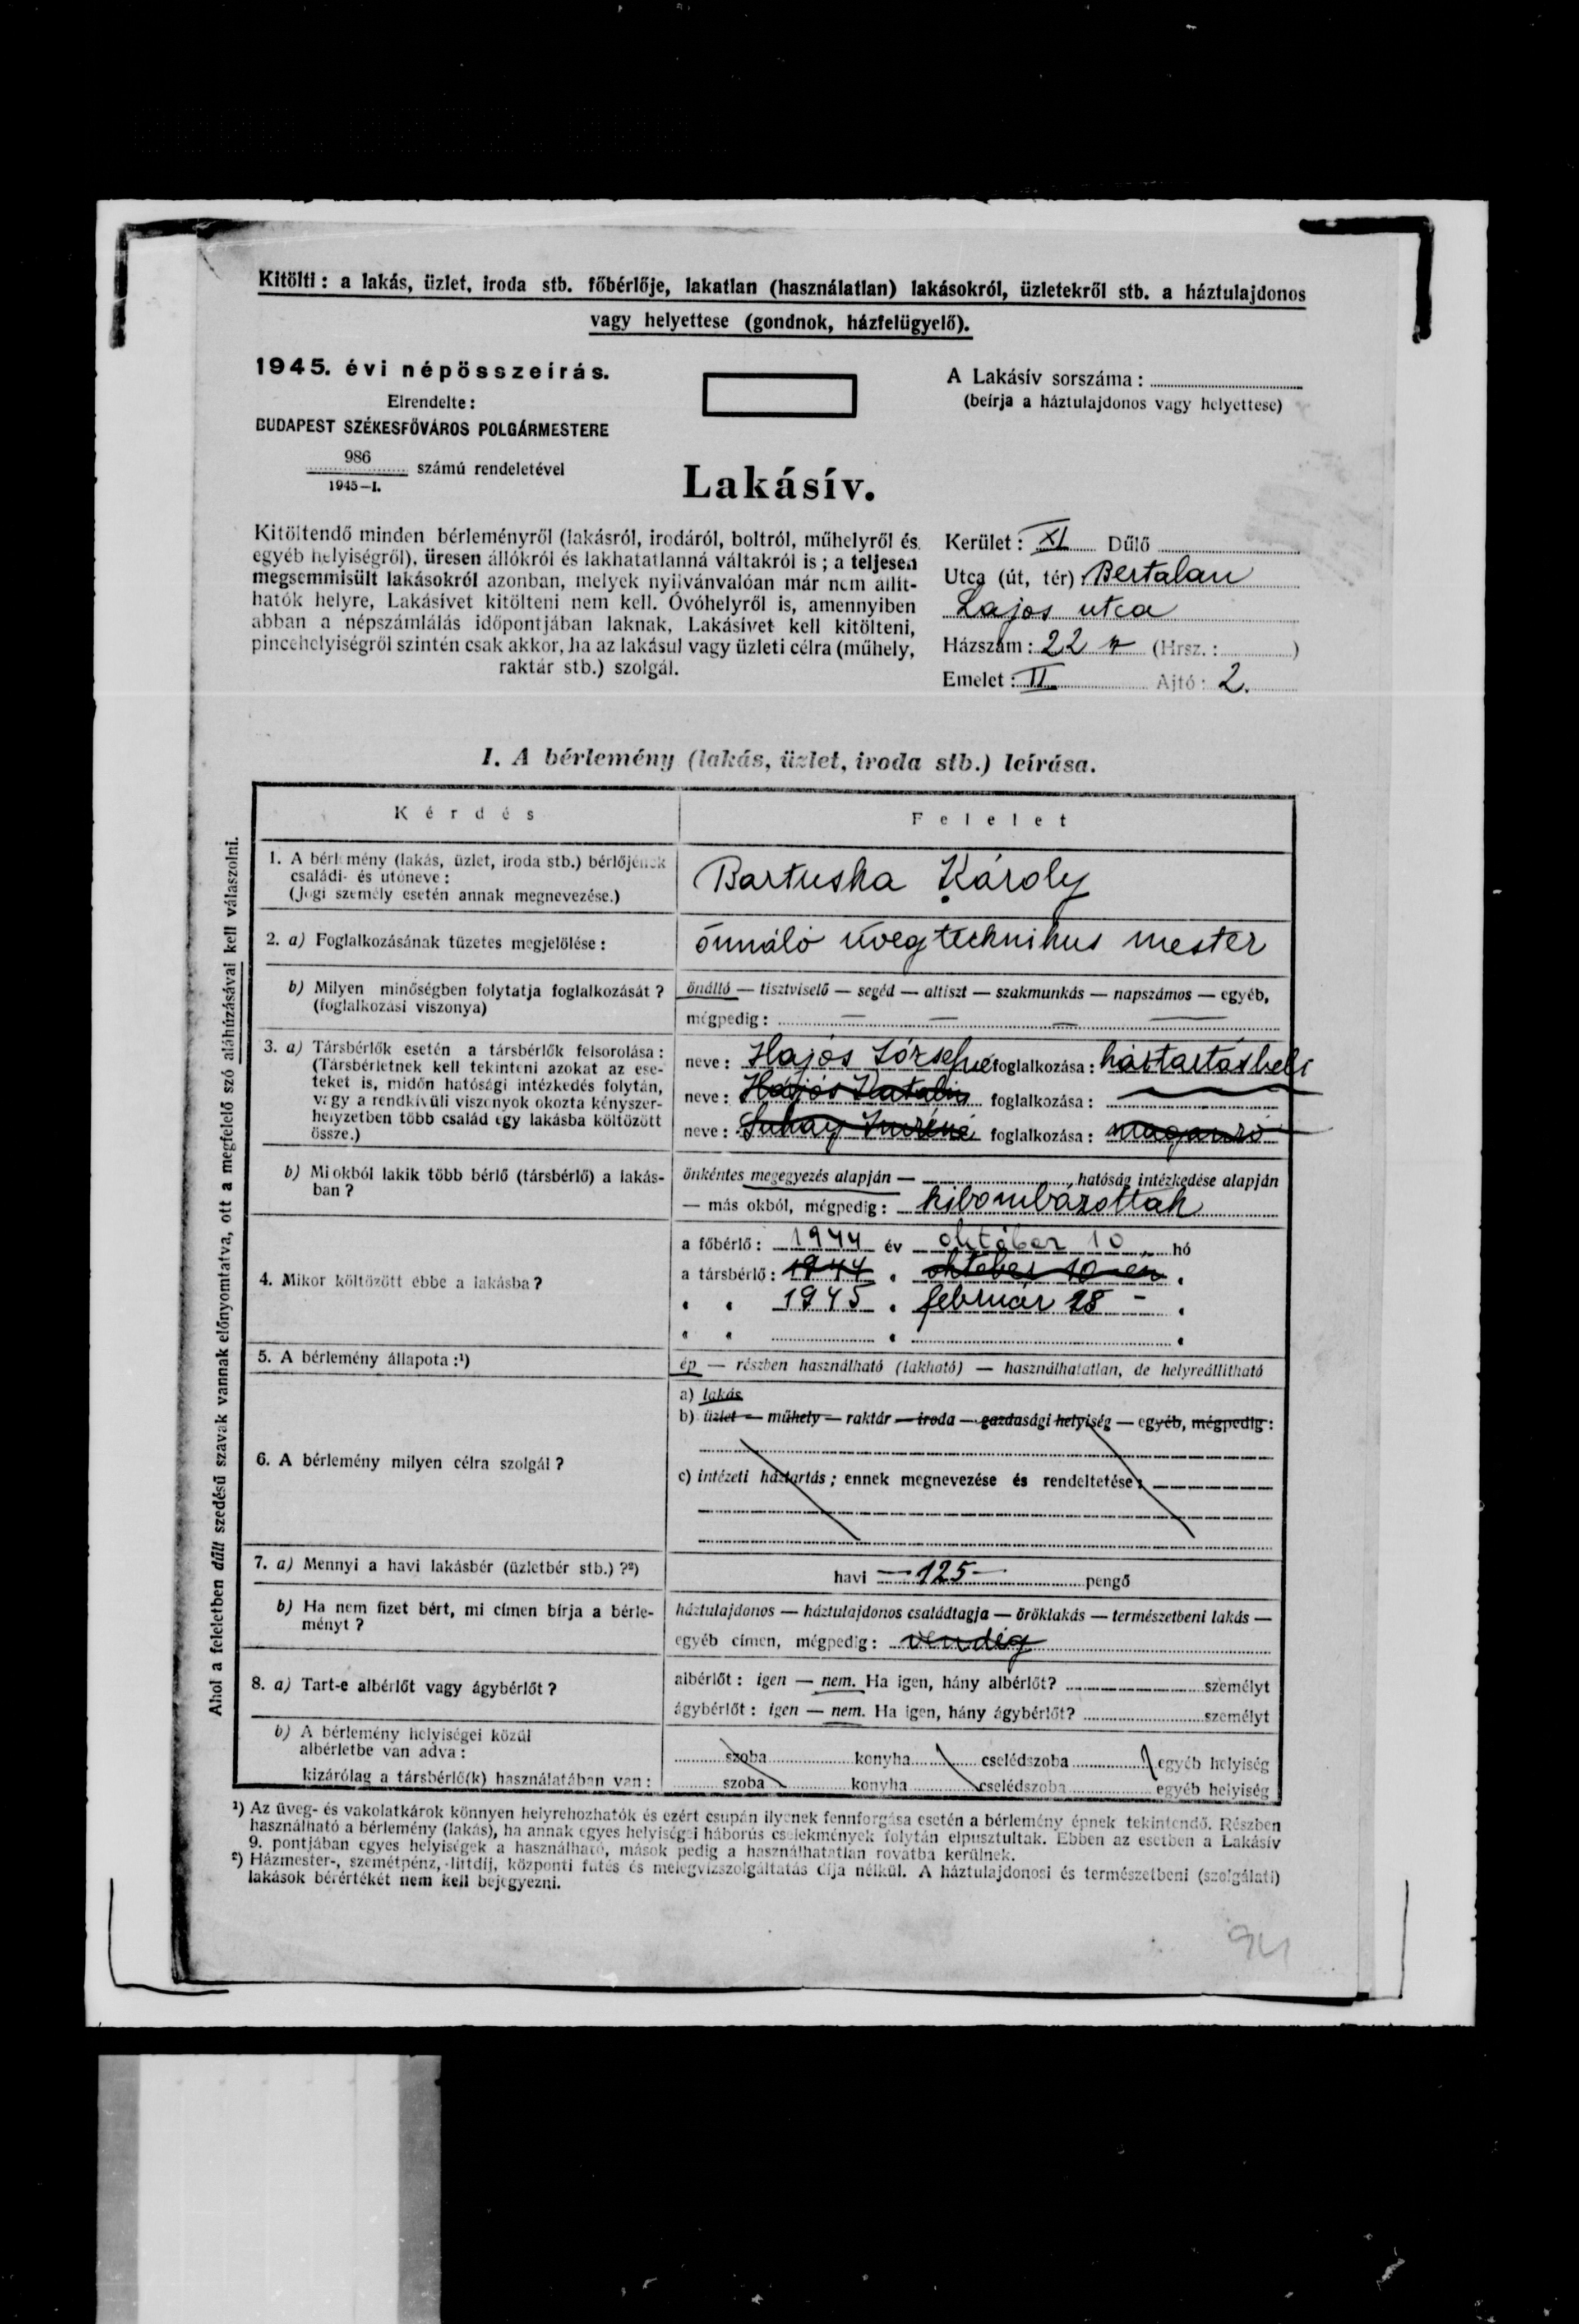 Kitölti: a lakás, üzlet, iroda stb. főbérlője, lakatlan (használatlan) lakásokról, üzletekről stb. a háztulajdonos
vagy helyettese (gondnok, házfelügyelő).
1945. évi népösszeírás.
Elrendelte:
BUDAPEST SZÉKESFŐVÁROS POLGÁRMESTERE
986
1945—I. számú rendeletével
A Lakásív sorszáma:
(beírja a háztulajdonos vagy helyettese)
Lakásív.
Kitöltendő minden bérleményről (lakásról, irodáról, boltról, műhelyről és
egyéb helyiségről), üresen állókról és lakhatatlanná váltakról is; a teljesen
megsemmisült lakásokról azonban, melyek nyilvánvalóan már nem állít-
hatók helyre, Lakásívet kitölteni nem kell. Óvóhelyről is, amennyiben
abban a népszámlálás időpontjában laknak, Lakásívet kell kitölteni,
pincehelyiségről szintén csak akkor, ha az lakásul vagy üzleti célra (műhely,
raktár stb.) szolgál.
Kerület: XI Dűlő
Utca (út, tér) Bertalan
Lajos utca
Házszám: 22 (Hrsz.: )
Emelet: II Ajtó: 2.
I. A bérlemény (lakás, üzlet, iroda stb.) leírása.
Kérdés Felelet
1. A bérlemény (lakás, üzlet, iroda stb.) bérlőjének
családi- és utóneve:
(Jogi személy esetén annak megnevezése.)
Bartuska Károly
2. a) Foglalkozásának tüzetes megjelölése:
önnáló üvegtechnikus mester
b) Milyen minőségben folytatja foglalkozását?
(foglalkozási viszonya)
önálló — tisztviselő — segéd — altiszt — szakmunkás — napszámos — egyéb,
mégpedig:
3. a) Társbérlők esetén a társbérlők felsorolása:
(Társbérletnek kell tekinteni azokat az ese-
teket is, midőn hatósági intézkedés folytán,
vagy a rendkívüli viszonyok okozta kényszer-
helyzetben több család egy lakásba költözött
össze.)
neve: Hajós Józsefné foglalkozása: háztartásbeli
neve: Hajós Katalin foglalkozása:
neve: Suhay Imréné foglalkozása: magánzó
b) Mi okból lakik több bérlő (társbérlő) a lakás-
ban?
önkéntes megegyezés alapján — hatóság intézkedése alapján
— más okból, mégpedig: kibombázottak
4. Mikor költözött ebbe a lakásba?
a főbérlő: 1944 év október 10 hó
a társbérlő: 1944 „ október 10-én „
„ „ 1945 „ február 28 - „
„ „ „ „
5. A bérlemény állapota:¹)
ép — részben használható (lakható) — használhatatlan, de helyreállítható
6. A bérlemény milyen célra szolgál?
a) lakás
b) üzlet — műhely — raktár — iroda — gazdasági helyiség — egyéb, mégpedig:
c) intézeti háztartás; ennek megnevezése és rendeltetése:
7. a) Mennyi a havi lakásbér (üzletbér stb.)?²)
havi — 125 — pengő
b) Ha nem fizet bért, mi címen bírja a bérle-
ményt?
háztulajdonos — háztulajdonos családtagja — öröklakás — természetbeni lakás —
egyéb címen, mégpedig: vendég
8. a) Tart-e albérlőt vagy ágybérlőt?
albérlőt: igen — nem. Ha igen, hány albérlőt? személyt
ágybérlőt: igen — nem. Ha igen, hány ágybérlőt? személyt
b) A bérlemény helyiségei közül
albérletbe van adva:
szoba konyha cselédszoba egyéb helyiség
kizárólag a társbérlő(k) használatában van:
szoba konyha cselédszoba egyéb helyiség
¹) Az üveg- és vakolatkárok könnyen helyrehozhatók és ezért csupán ilyenek fennforgása esetén a bérlemény épnek tekintendő. Részben
használható a bérlemény (lakás), ha annak egyes helyiségei háborús cselekmények folytán elpusztultak. Ebben az esetben a Lakásív
9. pontjában egyes helyiségek a használható, mások pedig a használhatatlan rovatba kerülnek.
²) Házmester-, szemétpénz, liftdíj, központi fűtés és melegvízszolgáltatás díja nélkül. A háztulajdonosi és természetbeni (szolgálati)
lakások bérértékét nem kell bejegyezni.
Ahol a feleletben dűlt szedésű szavak vannak előnyomtatva, ott a megfelelő szó aláhúzásával kell válaszolni.